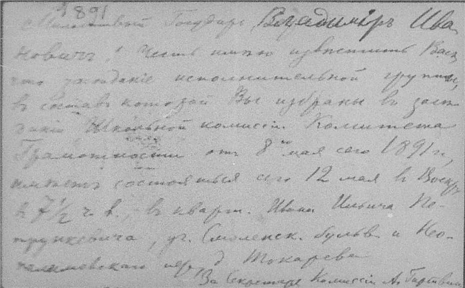 1891
Милостивый Государь Владимiръ Ива-
новичъ! Честь имѣю извѣстить Васъ,
что засѣданiе исполнительной группы,
въ составъ которой Вы избраны въ засѣ-
данiи Школьной комиссiи Комитета
Грамотности отъ 8 мая сего 1891 г.,
имѣетъ состояться сего 12 мая въ Воскр.
в 7½ ч. в. в кварт. Ивана Ильича Пе-
трункевича, уг. Смоленск. бульв. и Нео-
палимовскаго пер. д. Токарева
За Секретаря Комиссiи А.